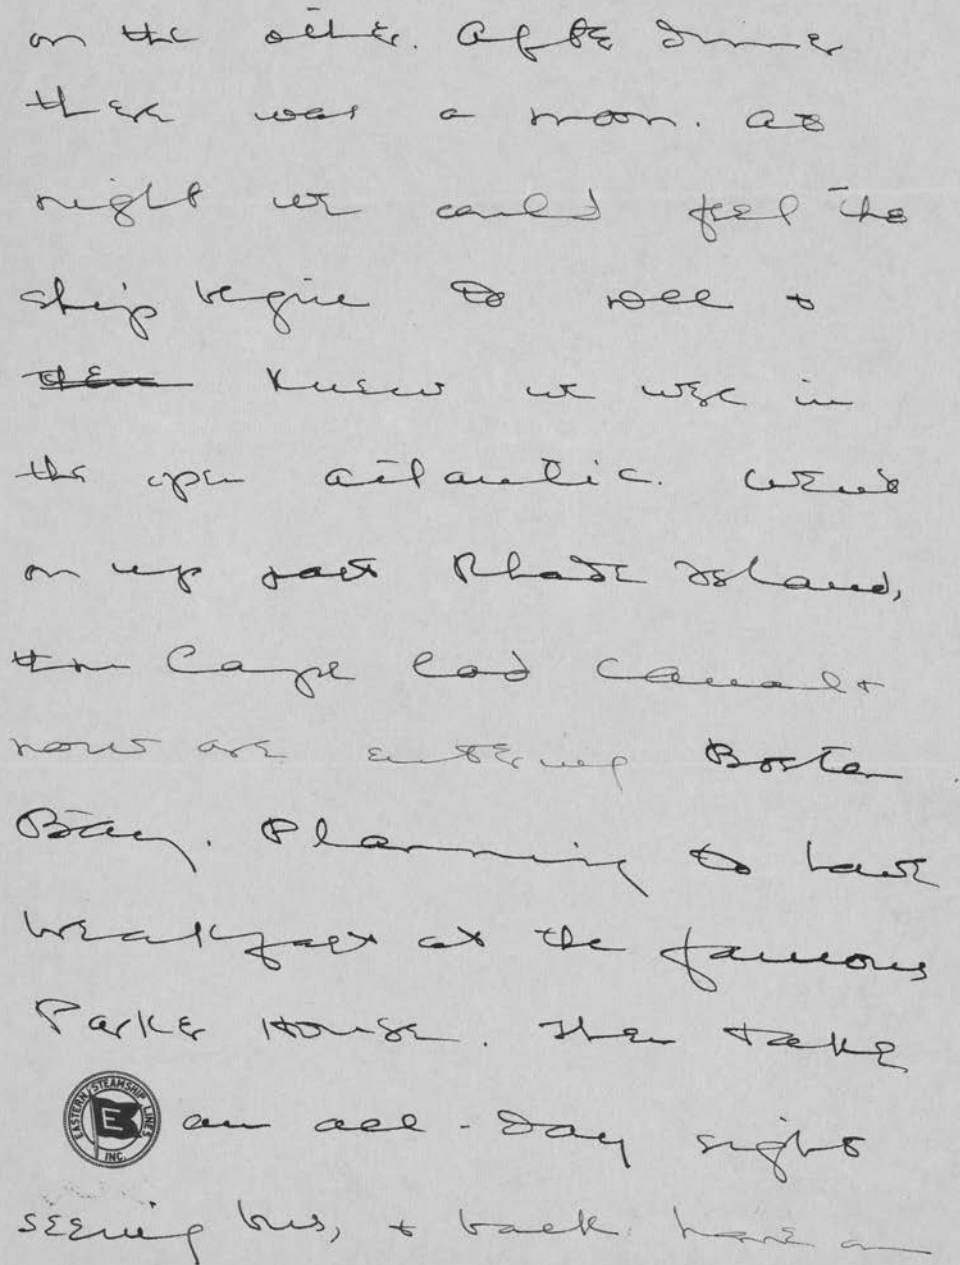 on the other. After dinner
there was a moon. At
night we could feel the
ship begin to roll &
then knew we were in
the open Atlantic. Went
on up past Rhode Island,
thru Cape Cod Canal &
now are entering Boston
Bay. Planning to have
breakfast at the famous
Parker House. Then take
EASTERN STEAMSHIP LINES INC. E
an all-day sight
seeing bus, & back here on